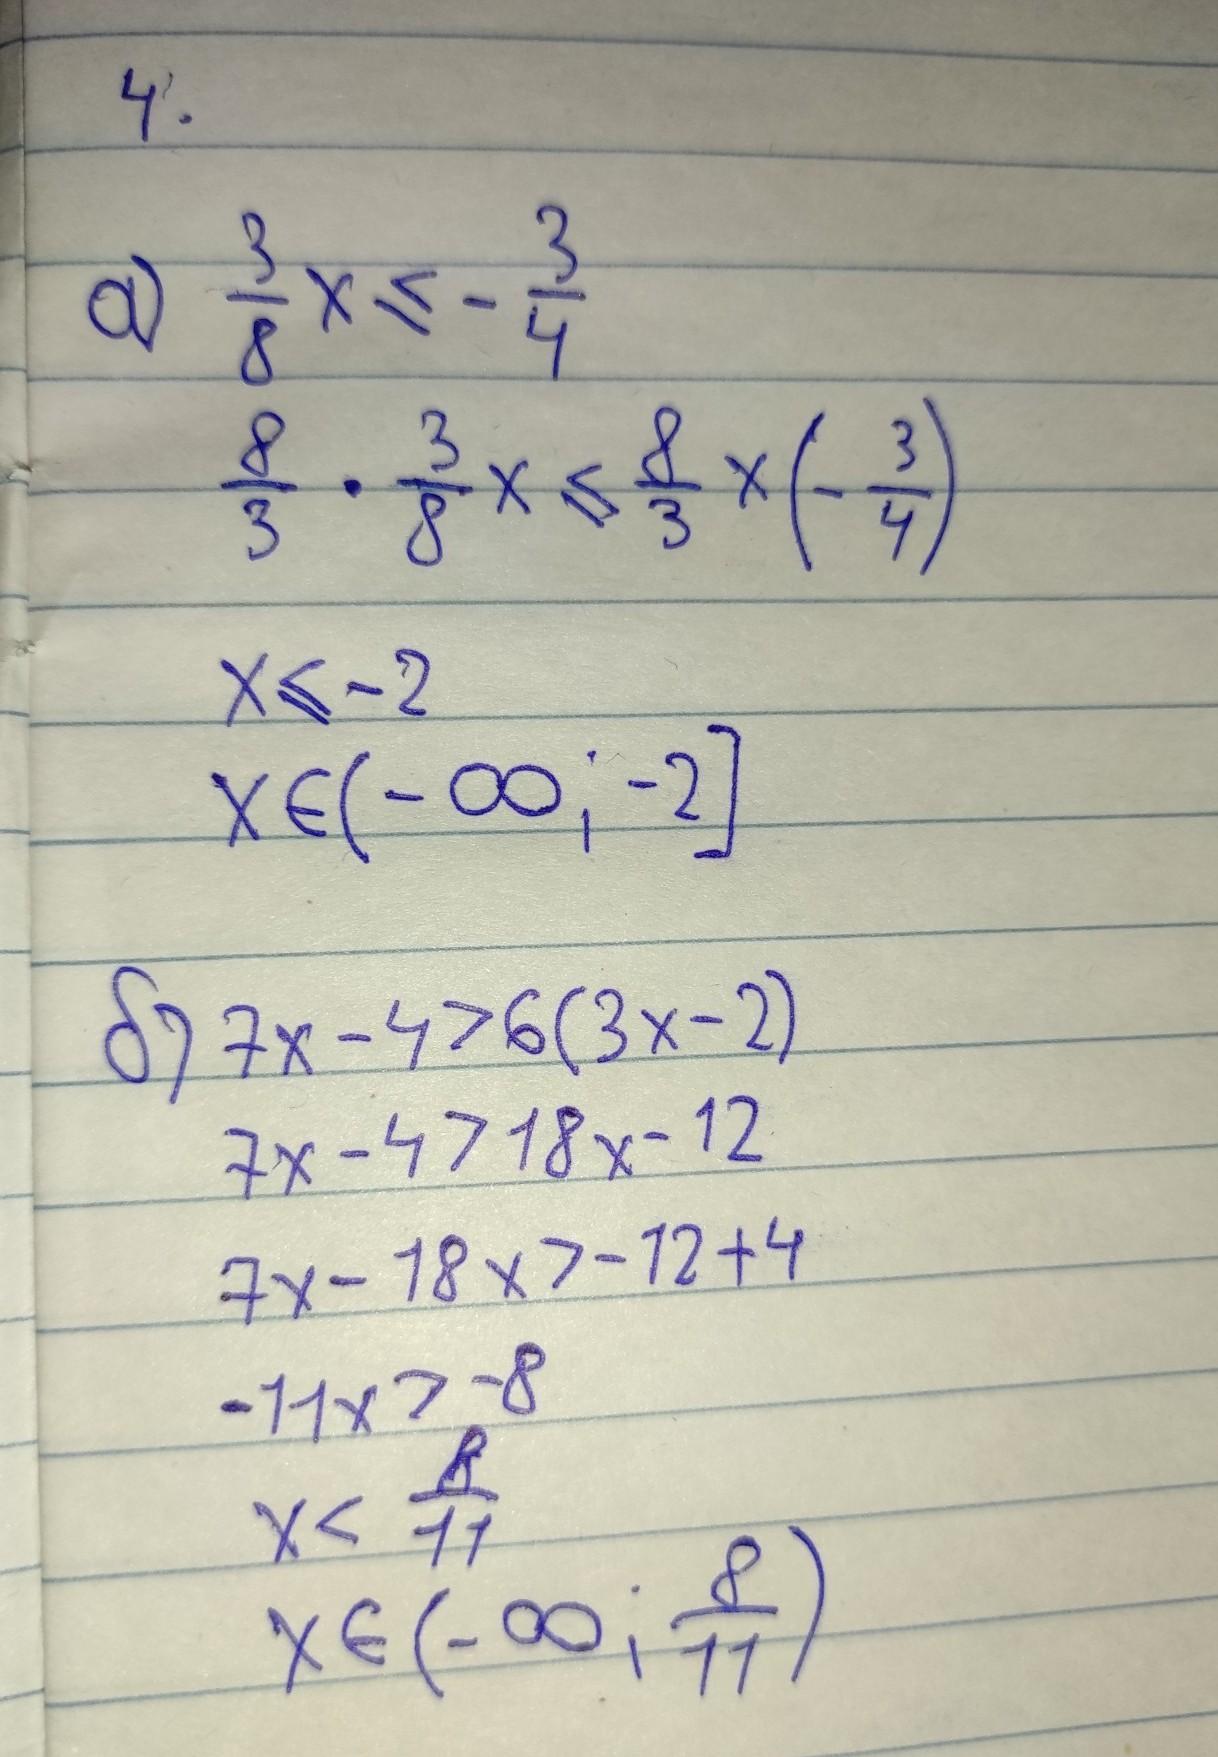 4.
а) 3/8 x ⩽ - 3/4
8/3 · 3/8 x ⩽ 8/3 x (- 3/4)
x ⩽ -2
x ∈ (- ∞; -2]
б) 7x - 4 > 6(3x - 2)
7x - 4 > 18x - 12
7x - 18x > -12 + 4
-11x > -8
x < 8/11
x ∈ (- ∞; 8/11)